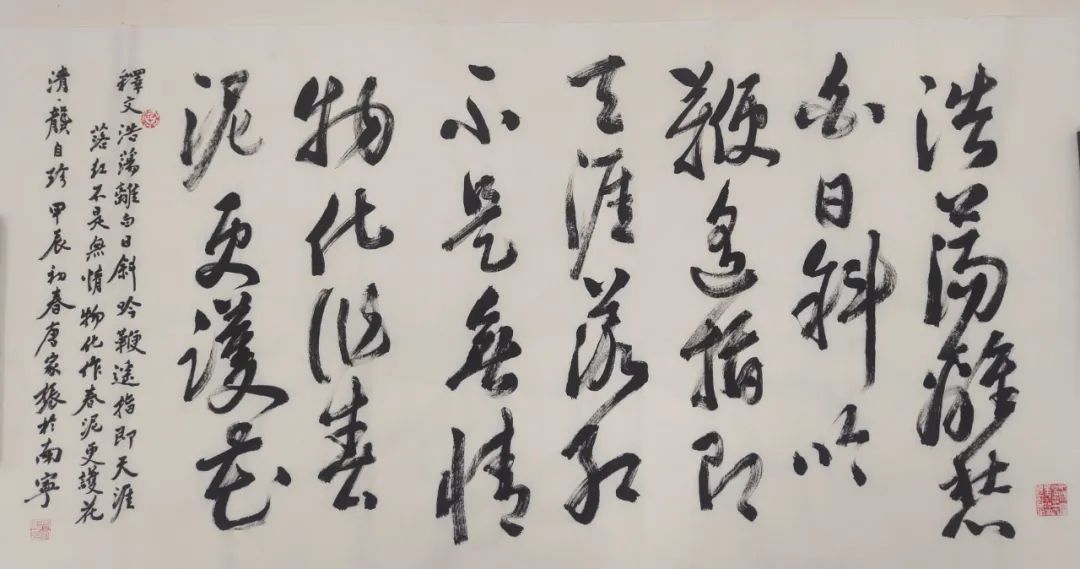 浩蕩離愁
白日斜吟
鞭遥指即
天涯落红
不是無情
物化作春
泥更護花
釋文 浩蕩離白日斜吟鞭遥指即天涯
落红不是無情物化作春泥更護花
清·龔自珍 甲辰初春唐家振於南寧